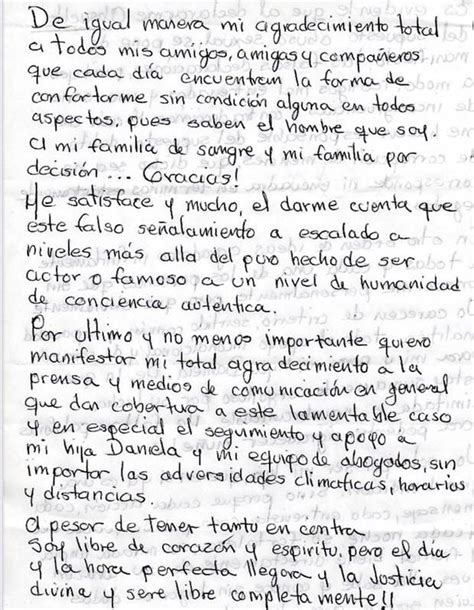 De igual manera mi agradecimiento total
a todos mis amigos, amigas y compañeros
que cada día encuentran la forma de
confortarme sin condición alguna en todos
aspectos, pues saben el hombre que soy.
A mi familia de sangre y mi familia por
decisión... Gracias!
Me satisface y mucho, el darme cuenta que
este falso señalamiento a escalado a
niveles más alla del puro hecho de ser
actor o famoso, a un nivel de humanidad
de conciencia autentica.
Por ultimo y no menos importante quiero
manifestar mi total agradecimiento a la
prensa y medios de comunicación en general
que dan cobertura a este lamentable caso
y en especial el seguimiento y apoyo a
mi hija Daniela y mi equipo de abogados, sin
importar las adversidades climaticas, horarios
y distancias.
A pesar de tener tanto en contra
Soy libre de corazón y espiritu, pero el dia
y la hora perfecta llegara y la Justicia
divina y sere libre completa mente!!